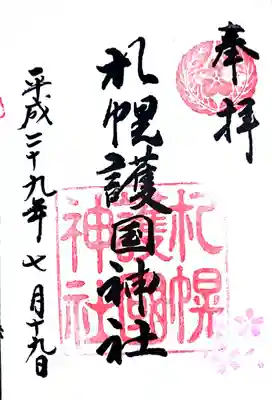 奉拝
札幌護国神社
平成二十九年七月十九日
札幌
護國
神社